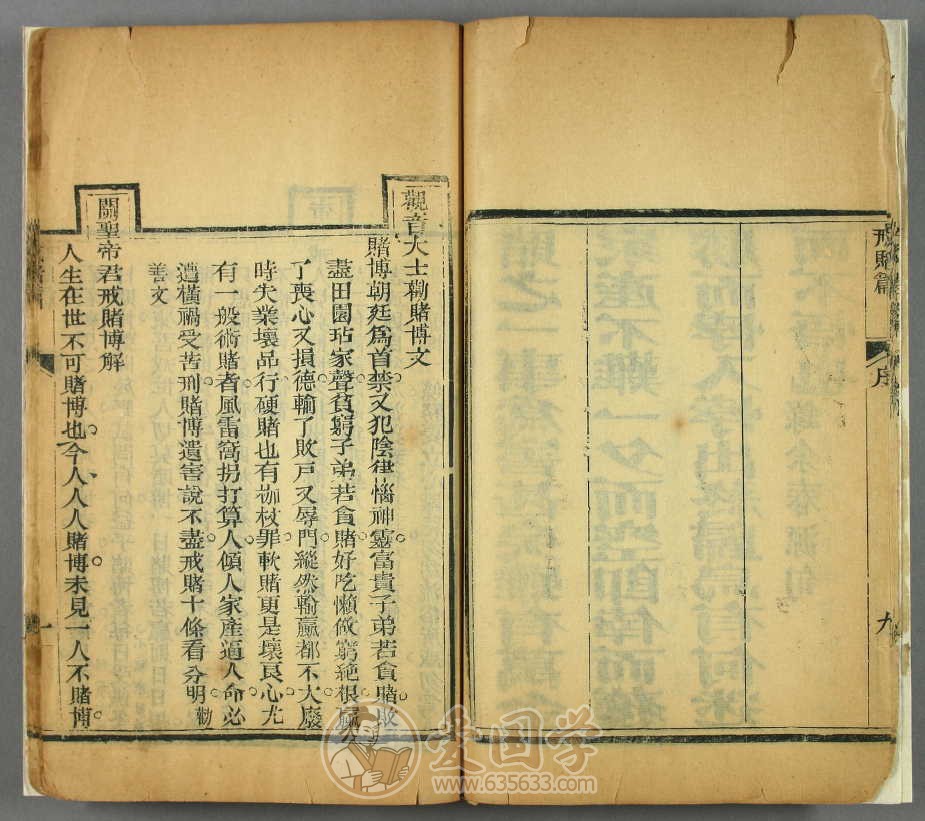 戒賭篇
序
九
觀音大士勸賭博文
賭博朝廷爲首禁又犯陰律惱神靈富貴子弟若貪賭敗
盡田園玷家聲貧窮子弟若貪賭好吃懶做窮絶根贏
了喪心又損德輸了敗戸又辱門縱然輸贏都不大廢
時失業壞品行硬賭也有枷杖罪軟賭更是壞良心尤
有一般術賭者風雷窩拐打算人傾人家產逼人命必
遭橫禍受苦刑賭博遺害說不盡戒賭十條看分明勸
善文
關聖帝君戒賭博解
人生在世不可賭博也今人人人賭博未見一人不賭博
一
爱国学
www.635633.com